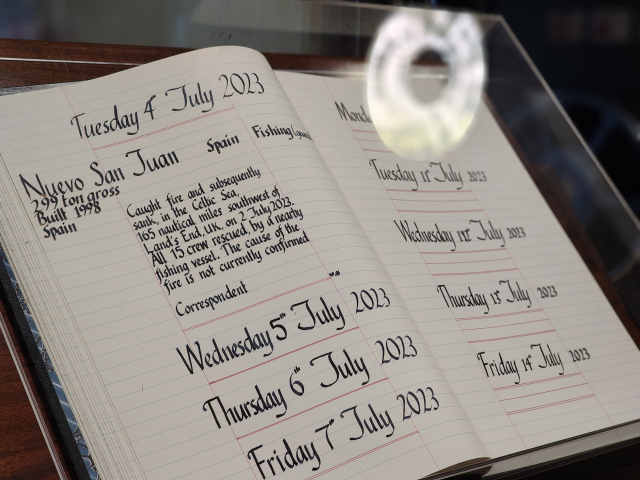 Tuesday 4th July 2023
Nuevo San Juan Spain Fishing
299 ton gross
Built 1998
Spain
Caught fire and subsequently
sank, in the Celtic Sea,
165 nautical miles southwest of
Land's End, UK, on 2 July, 2023.
All 15 crew rescued, by a nearby
fishing vessel. The cause of the
fire is not currently confirmed
Correspondent
Wednesday 5th July 2023
Thursday 6th July 2023
Friday 7th July 2023
Tuesday 11th July 2023
Wednesday 12th July 2023
Thursday 13th July 2023
Friday 14th July 2023